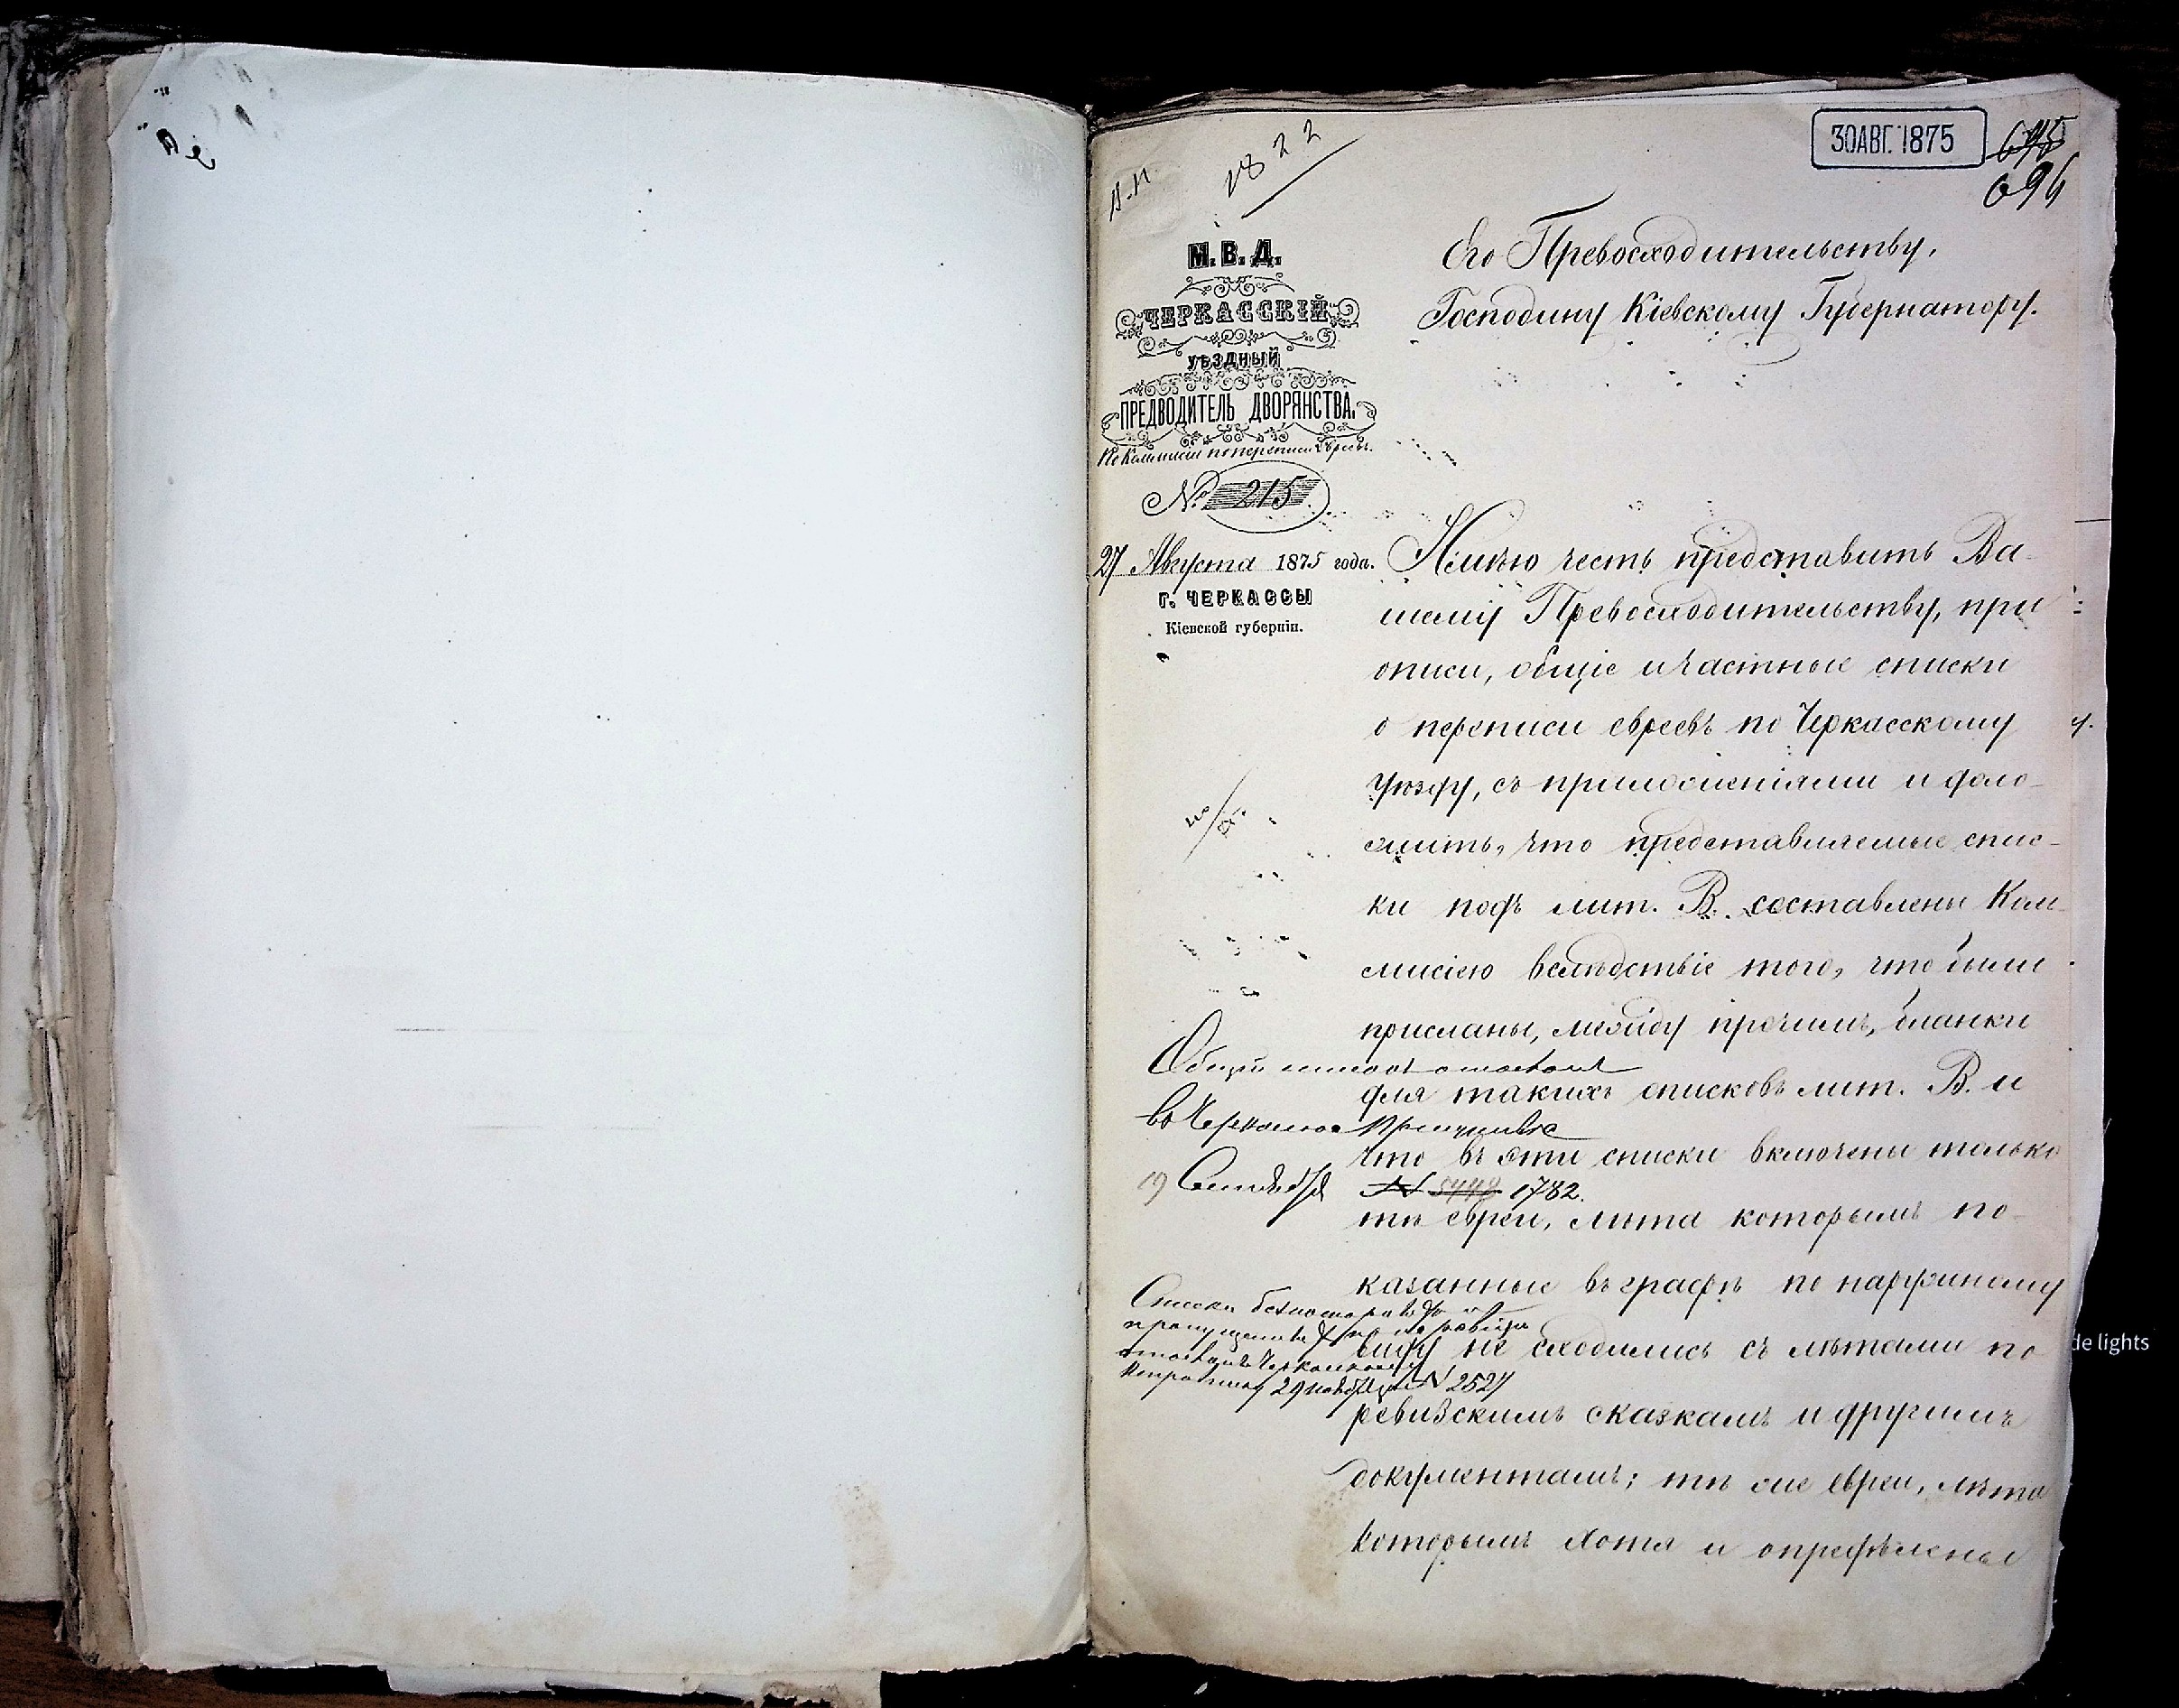 30 АВГ. 1875
645
696
1822
М. В. Д.
ЧЕРКАССКІЙ
УѢЗДНЫЙ
ПРЕДВОДИТЕЛЬ ДВОРЯНСТВА.
По Коммисіи по переписи Евреевъ.
№ 215
27 Августа 1875 года.
Г. ЧЕРКАССЫ
Кіевской губерніи.
Его Превосходительству,
Господину Кіевскому Губернатору.
Имѣю честь представить Ва-
шему Превосходительству, при
описи, общіе и частные списки
о переписи евреевъ по Черкасскому
уѣзду, съ приложеніями и доло-
жить, что представляемые спис-
ки подъ лит. В. составлены Ком-
мисіею вслѣдствіе того, что были
присланы, между прочимъ, бланки
для такихъ списковъ лит. В. и
что въ эти списки включены только
тѣ евреи, лѣта которымъ по-
казанные въ графѣ по наружному
виду не сходились съ лѣтами по
ревизскимъ сказкамъ и другимъ
документамъ; тѣ же евреи, лѣта
которымъ хотя и опредѣлены
Общій
въ Черкасское
19 Сентября № 5448 1782.
Списки
29 № 2527
de lights